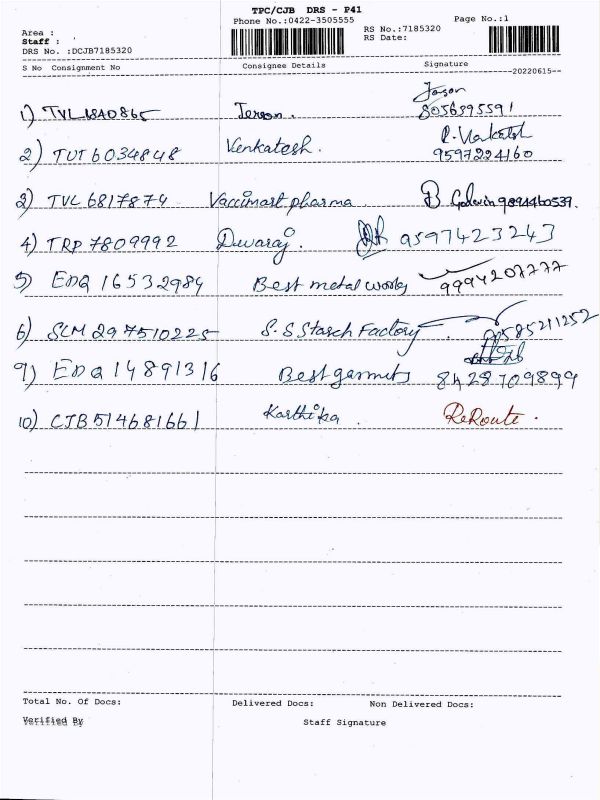 TPC/CJB DRS - P41
Phone No.:0422-3505555 Page No.:1
Area :
Staff :
DRS No. :DCJB7185320
RS No.:7185320
RS Date:
S No Consignment No Consignee Details Signature
--20220615--
Jason
1) TVL 1840865 Jerson. 8056395591
R. Venkatesh
2) TUT 6034848 Venkatesh. 9597224160
3) TVL 6817874 Vaccimart pharma B. Godwin 9894460539.
4) TRP 7809992 Devaraj. 9597423243
5) EDQ 16532984 Best metal works 9994207777
6) SLM 297510225 S.S Starch Factory 9585211252
9) EDQ 14891316 Best garments 8428709899
10) CJB 514681661 Karthika ReRoute.
Total No. Of Docs: Delivered Docs: Non Delivered Docs:
Verified By Staff Signature